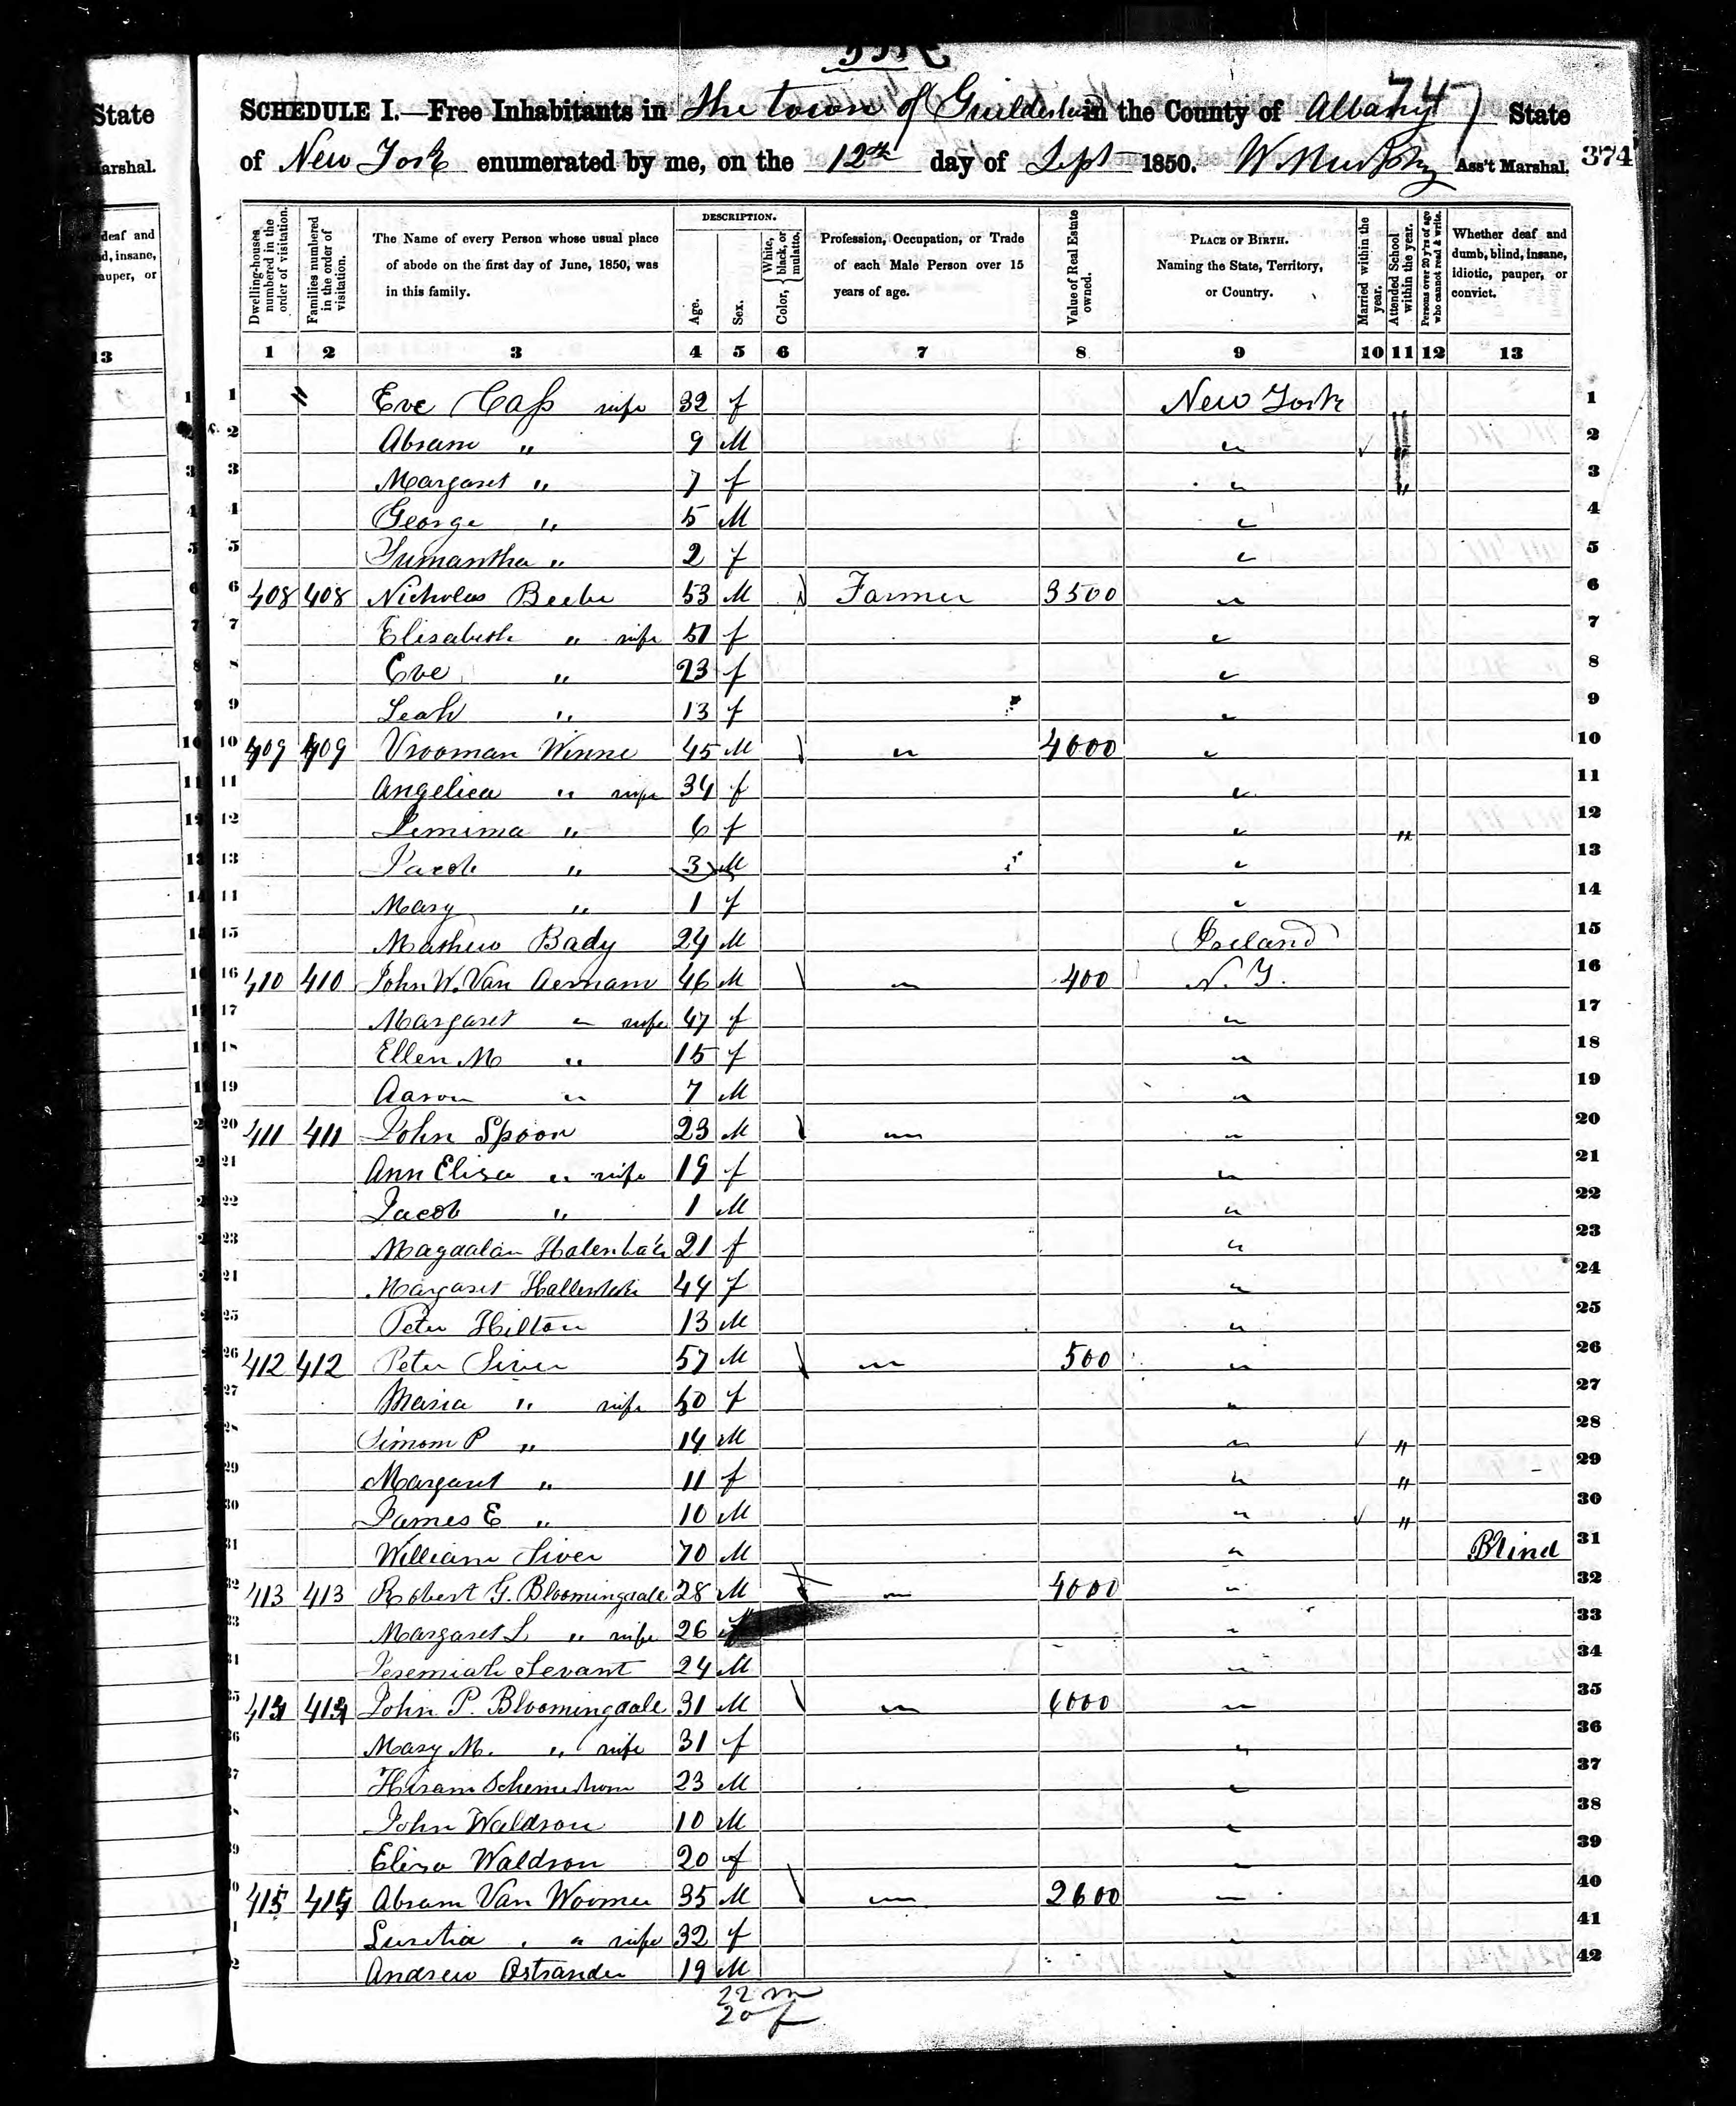 State
Marshal.
deaf and
d, insane,
pauper, or
13
747
SCHEDULE I.—Free Inhabitants in the town of Guilderland in the County of Albany State
of New York enumerated by me, on the 12th day of Sept 1850. W Murphy Ass't Marshal. 374
Dwelling-houses numbered in the order of visitation.
Families numbered in the order of visitation.
The Name of every Person whose usual place of abode on the first day of June, 1850, was in this family.
DESCRIPTION.
Age.
Sex.
Color, { White, black, or mulatto.
Profession, Occupation, or Trade of each Male Person over 15 years of age.
Value of Real Estate owned.
PLACE OF BIRTH. Naming the State, Territory, or Country.
Married within the year.
Attended School within the year.
Persons over 20 y'rs of age who cannot read & write.
Whether deaf and dumb, blind, insane, idiotic, pauper, or convict.
1 2 3 4 5 6 7 8 9 10 11 12 13
1 " Eve Cass wife 32 f New York " 1
2 Abram " 9 M " " 2
3 Margaret " 7 f " " 3
4 George " 5 M " 4
5 Sumantha " 2 f " 5
6 408 408 Nicholas Beebe 53 M Farmer 3500 " 6
7 Elisabeth " wife 51 f " 7
8 Eve " 23 f " 8
9 Leah " 13 f " 9
10 409 409 Vrooman Winne 45 M " 4000 " 10
11 Angelica " wife 34 f " 11
12 Jemima " 6 f " " 12
13 Jacob " 3 M " 13
14 Mary " 1 f " 14
15 Mathew Bady 24 M Ireland 15
16 410 410 John W. Van Aernam 46 M " 400 N. Y. 16
17 Margaret " wife 47 f " 17
18 Ellen M " 15 f " 18
19 Aaron " 7 M " 19
20 411 411 John Spoor 23 M " " 20
21 Ann Eliza " wife 19 f " 21
22 Jacob " 1 M " 22
23 21 f " 23
24 Margaret 44 f " 24
25 Peter Hilton 13 M " 25
26 412 412 Peter Siver 57 M " 500 " 26
27 Maria " wife 50 f " 27
28 Simom P " 14 M " " 28
29 Margaret " 11 f " " 29
30 James E " 10 M " " 30
31 William Siver 70 M " Blind 31
32 413 413 Robert G. Bloomingdale 28 M " 4000 " 32
33 Margaret L " wife 26 f " 33
34 Jeremiah Sevant 24 M " 34
35 414 414 John P. Bloomingdale 31 M " 6000 " 35
36 Mary M. " wife 31 f " 36
37 Hiram 23 M " 37
38 John Waldron 10 M " 38
39 Eliza Waldron 20 f " 39
40 415 415 Abram Van Wormer 35 M " 2600 " 40
41 Lucretia " " wife 32 f " 41
42 Andrew Ostrander 19 M " 42
22 m
20 f